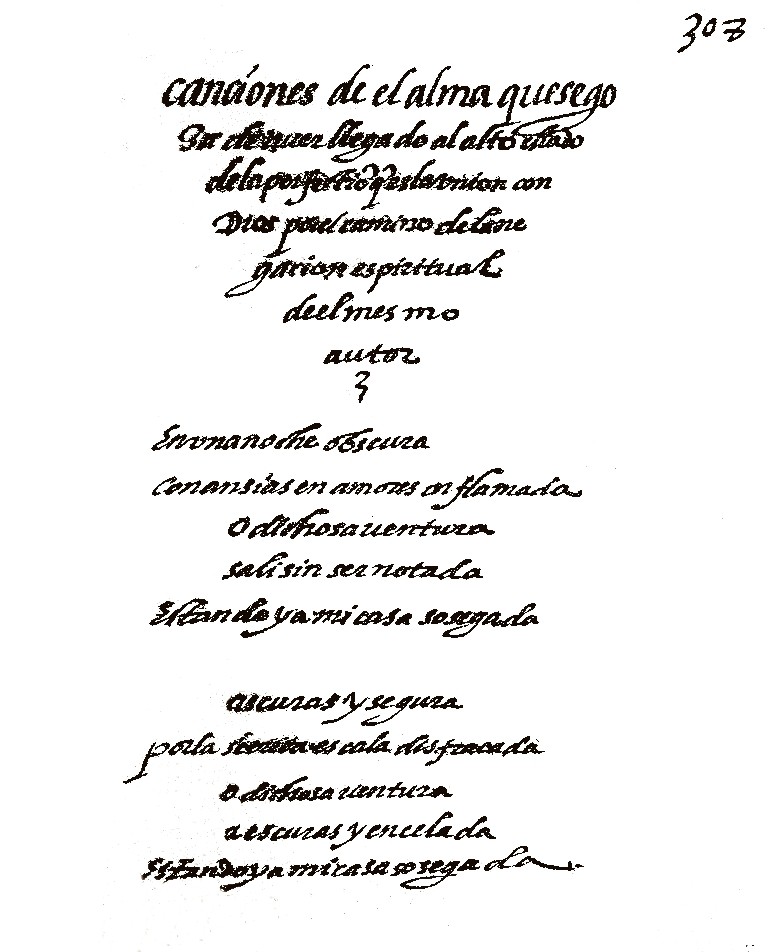 307
canciones de el alma que se go
za de auer llegado al alto estado
de la perfectiõ q̃ es la vnion con
Dios por el camino de la ne
gacion espiritual
de el mesmo
autor
En vna noche obscura
con ansias en amores en flamada
o dichosa uentura
sali sin ser notada
Estando ya mi casa sosegada
ascuras y segura
por la secreta escala disfracada
o dichosa uentura
a escuras y encelada
Estando ya mi casa sosegada